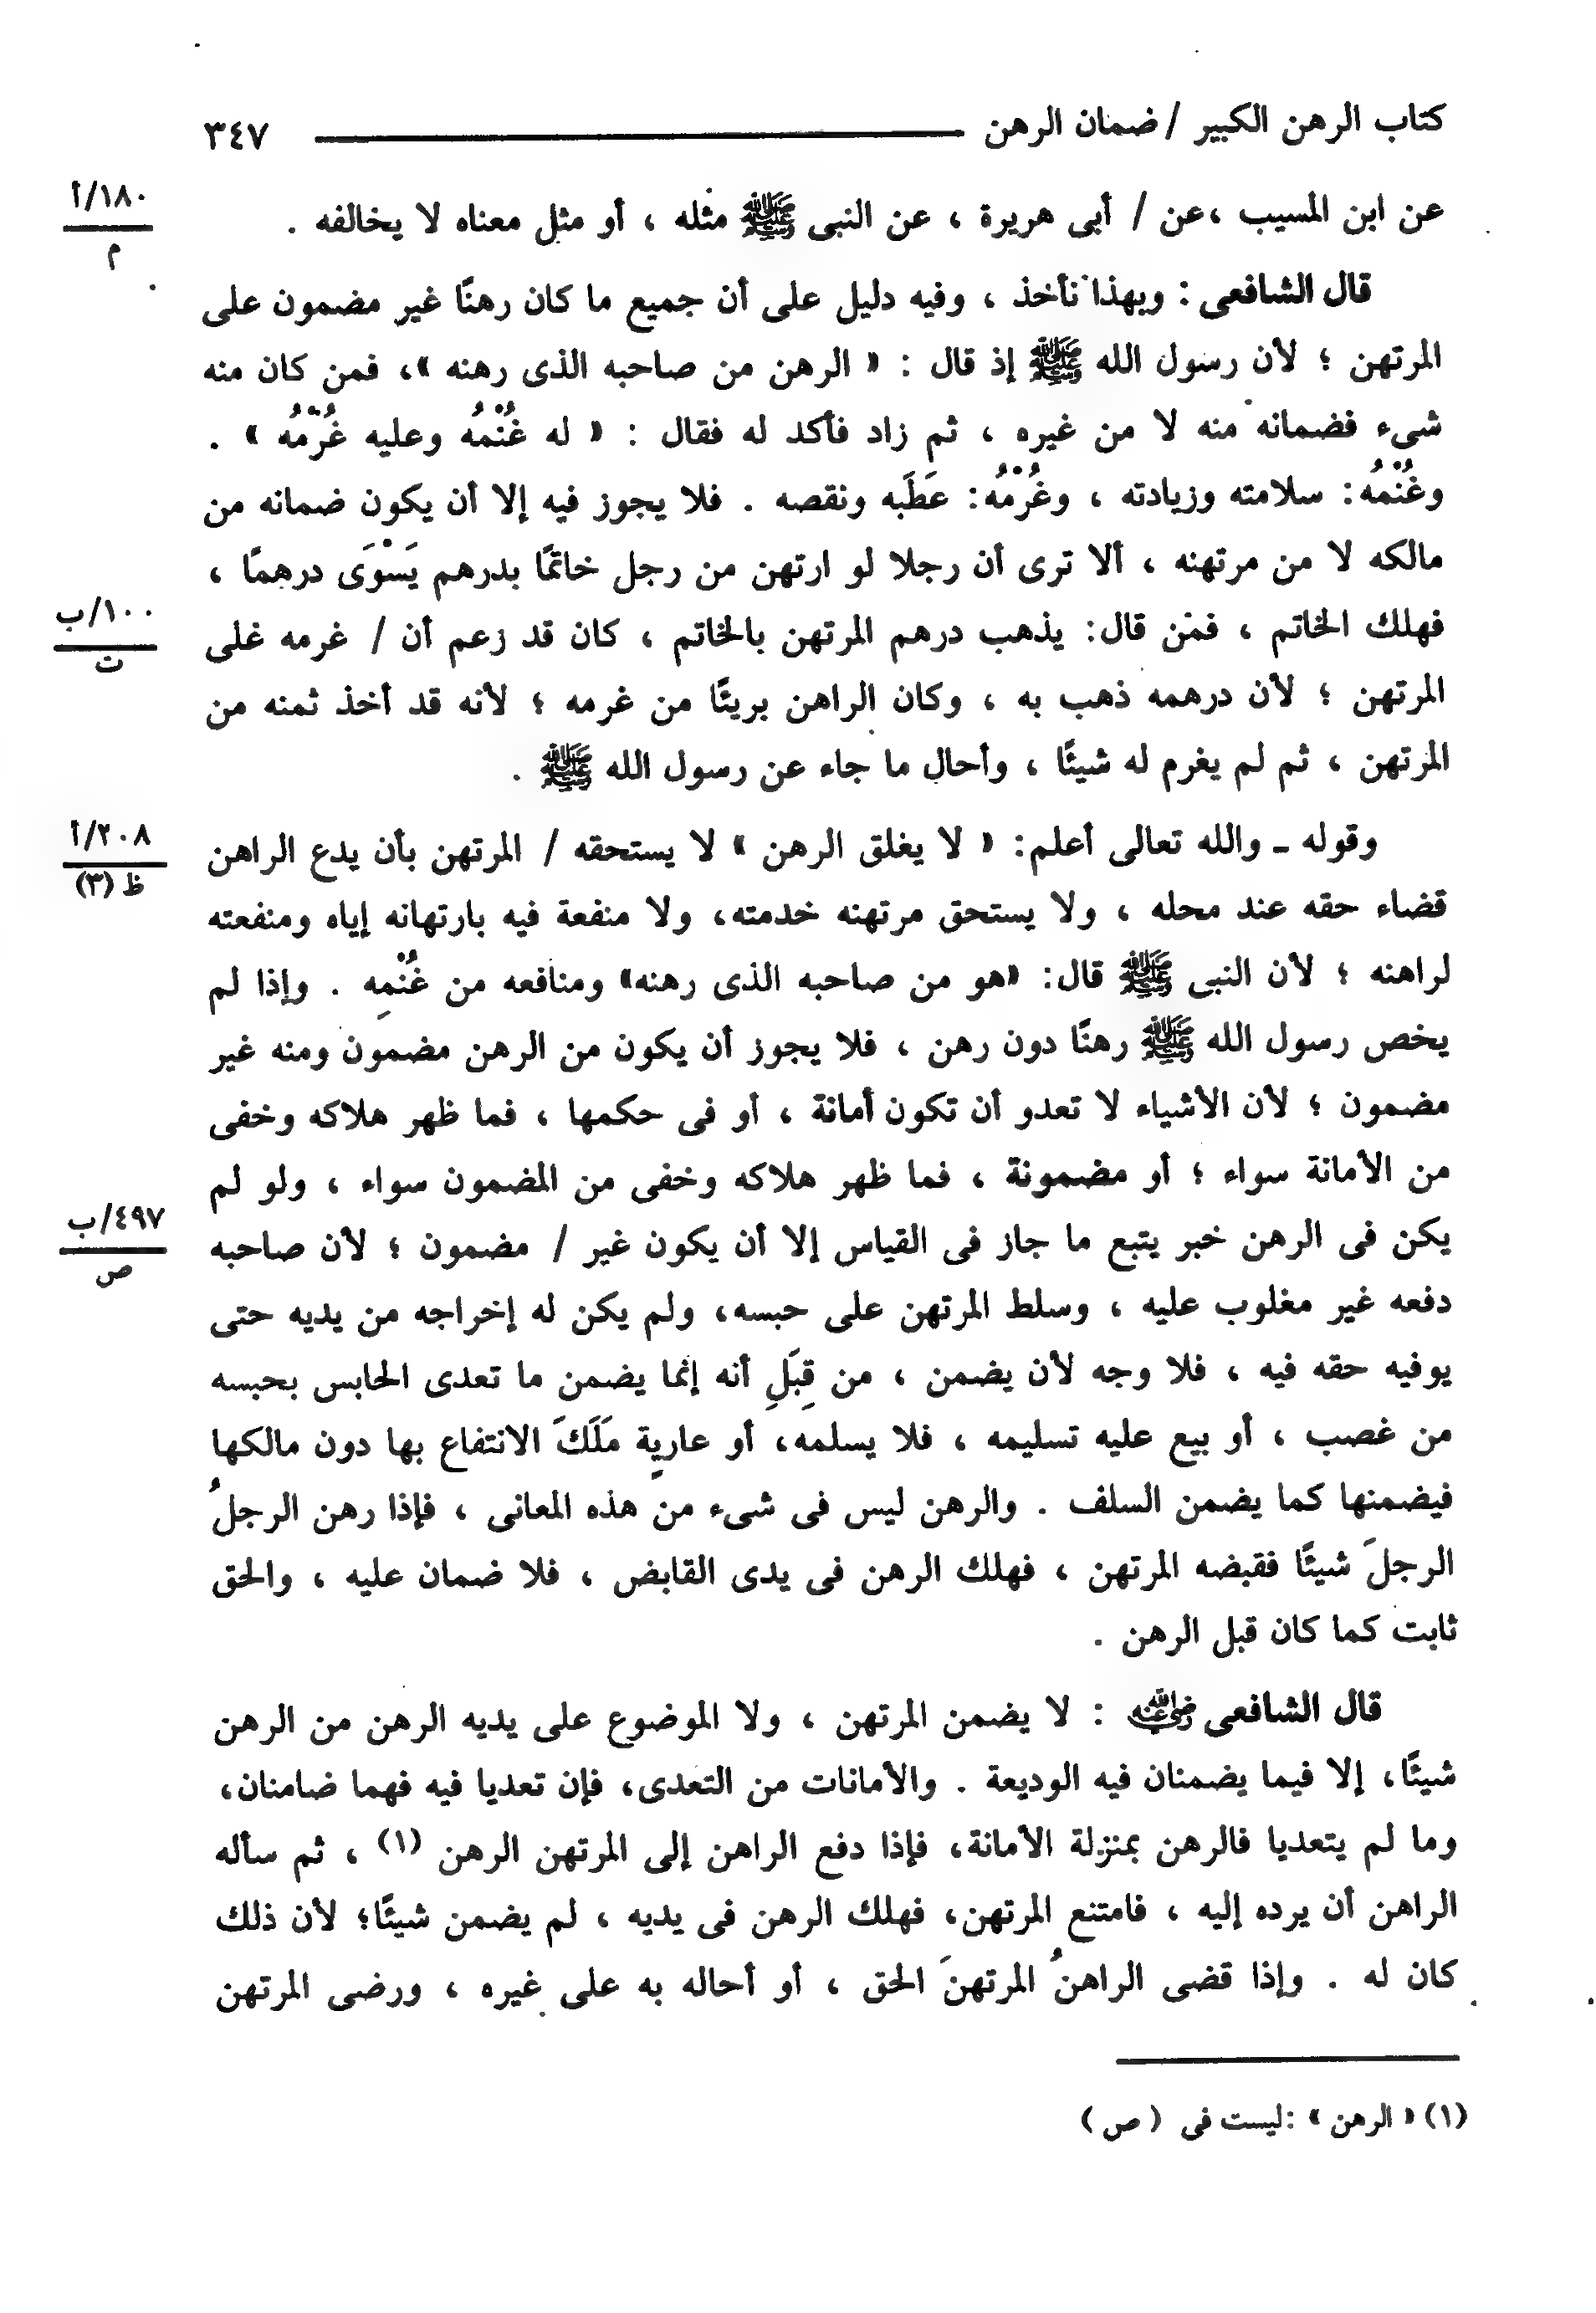 كتاب الرهن الكبير / ضمان الرهن ٣٤٧
عن ابن المسيب ، عن / أبى هريرة ، عن النبى ﷺ مثله ، أو مثل معناه لا يخالفه .
١٨٠/أ
م
قال الشافعى : وبهذا نأخذ ، وفيه دليل على أن جميع ما كان رهنًا غير مضمون على
المرتهن ؛ لأن رسول الله ﷺ إذ قال : « الرهن من صاحبه الذى رهنه »، فمن كان منه
شىء فضمانه منه لا من غيره ، ثم زاد فأكد له فقال : « له غُنْمُه وعليه غُرْمُه » .
وغُنْمُه: سلامته وزيادته ، وغُرْمُه: عَطَبه ونقصه . فلا يجوز فيه إلا أن يكون ضمانه من
مالكه لا من مرتهنه ، ألا ترى أن رجلا لو ارتهن من رجل خاتمًا بدرهم يَسْوَى درهمًا ،
فهلك الخاتم ، فمن قال: يذهب درهم المرتهن بالخاتم ، كان قد زعم أن / غرمه على
١٠٠/ب
ت
المرتهن ؛ لأن درهمه ذهب به ، وكان الراهن بريئًا من غرمه ؛ لأنه قد أخذ ثمنه من
المرتهن ، ثم لم يغرم له شيئًا ، وأحال ما جاء عن رسول الله ﷺ .
وقوله ـ والله تعالى أعلم: « لا يغلق الرهن » لا يستحقه / المرتهن بأن يدع الراهن
٢٠٨/أ
ظ (٣)
قضاء حقه عند محله ، ولا يستحق مرتهنه خدمته، ولا منفعة فيه بارتهانه إياه ومنفعته
لراهنه ؛ لأن النبى ﷺ قال: «هو من صاحبه الذى رهنه» ومنافعه من غُنْمِه . وإذا لم
يخص رسول الله ﷺ رهنًا دون رهن ، فلا يجوز أن يكون من الرهن مضمون ومنه غير
مضمون ؛ لأن الأشياء لا تعدو أن تكون أمانة ، أو فى حكمها ، فما ظهر هلاكه وخفى
من الأمانة سواء ؛ أو مضمونة ، فما ظهر هلاكه وخفى من المضمون سواء ، ولو لم
يكن فى الرهن خبر يتبع ما جاز فى القياس إلا أن يكون غير / مضمون ؛ لأن صاحبه
٤٩٧/ب
ص
دفعه غير مغلوب عليه ، وسلط المرتهن على حبسه، ولم يكن له إخراجه من يديه حتى
يوفيه حقه فيه ، فلا وجه لأن يضمن ، من قِبَلِ أنه إنما يضمن ما تعدى الحابس بحبسه
من غصب ، أو بيع عليه تسليمه ، فلا يسلمه، أو عارية مَلَكَ الانتفاع بها دون مالكها
فيضمنها كما يضمن السلف . والرهن ليس فى شىء من هذه المعانى ، فإذا رهن الرجلُ
الرجلَ شيئًا فقبضه المرتهن ، فهلك الرهن فى يدى القابض ، فلا ضمان عليه ، والحق
ثابت كما كان قبل الرهن .
قال الشافعى رضي الله عنه : لا يضمن المرتهن ، ولا الموضوع على يديه الرهن من الرهن
شيئًا، إلا فيما يضمنان فيه الوديعة . والأمانات من التعدى، فإن تعديا فيه فهما ضامنان،
وما لم يتعديا فالرهن بمنزلة الأمانة، فإذا دفع الراهن إلى المرتهن الرهن (١) ، ثم سأله
الراهن أن يرده إليه ، فامتنع المرتهن، فهلك الرهن فى يديه ، لم يضمن شيئًا؛ لأن ذلك
كان له . وإذا قضى الراهنُ المرتهنَ الحق ، أو أحاله به على غيره ، ورضى المرتهن
(١) « الرهن » :ليست فى ( ص )